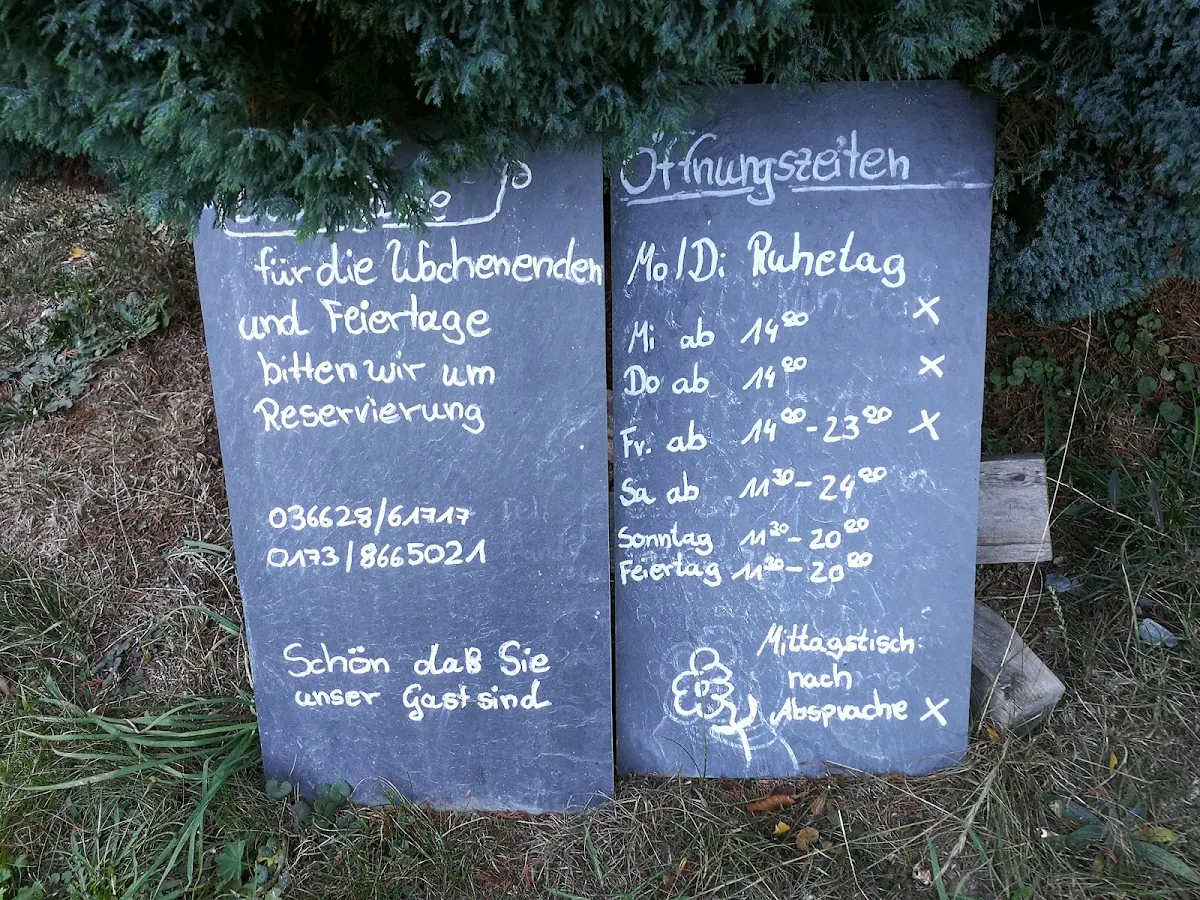 für die Wochenenden
und Feiertage
bitten wir um
Reservierung
036628/61717
0173/8665021
Schön daß Sie
unser Gast sind
Öffnungszeiten
Mo/Di Ruhetag
Mi ab 14⁰⁰ X
Do ab 14⁰⁰ X
Fr. ab 14⁰⁰-23⁰⁰ X
Sa ab 11³⁰-24⁰⁰
Sonntag 11³⁰-20⁰⁰
Feiertag 11³⁰-20⁰⁰
Mittagstisch
nach
Absprache X